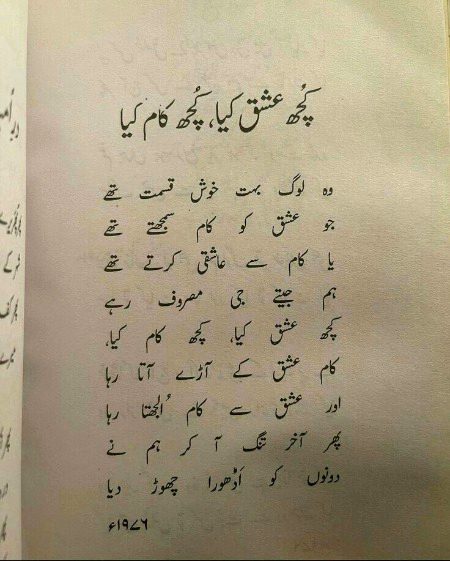 کچھ عشق کیا، کچھ کام کیا
وہ لوگ بہت خوش قسمت تھے
جو عشق کو کام سمجھتے تھے
یا کام سے عاشقی کرتے تھے
ہم جیتے جی مصروف رہے
کچھ عشق کیا، کچھ کام کیا،
کام عشق کے آڑے آتا رہا
اور عشق سے کام اُلجھتا رہا
پھر آخر تنگ آ کر ہم نے
دونوں کو اَدھورا چھوڑ دیا
۱۹۷۶ء